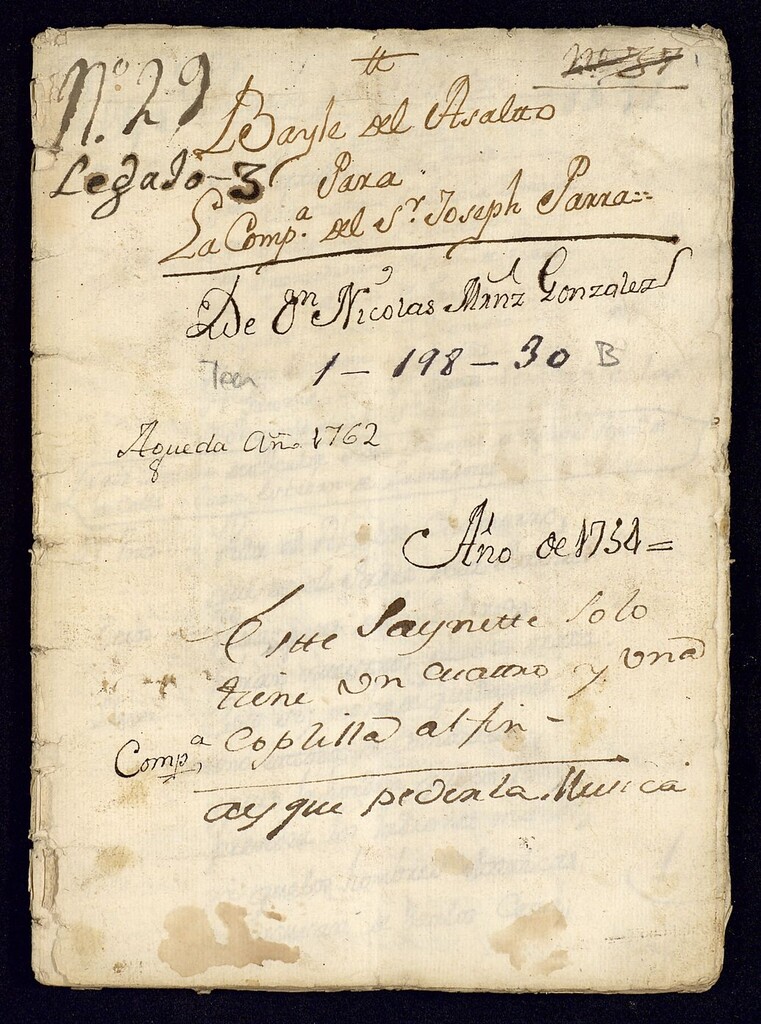 tt
N.º 29
Legajo-3
Bayle del Asaltto
Para
La Comp.ª del Sr. Joseph Parra=
De Dn Nicolas Mrnz Gonzalez
Tea 1-198-30 B
Agueda Año 1762
8
Año de 1754=
Estte Saynette solo
tiene un cuattro y una
Coplilla al fin-
Comp.ª
ay que pedir la Musica